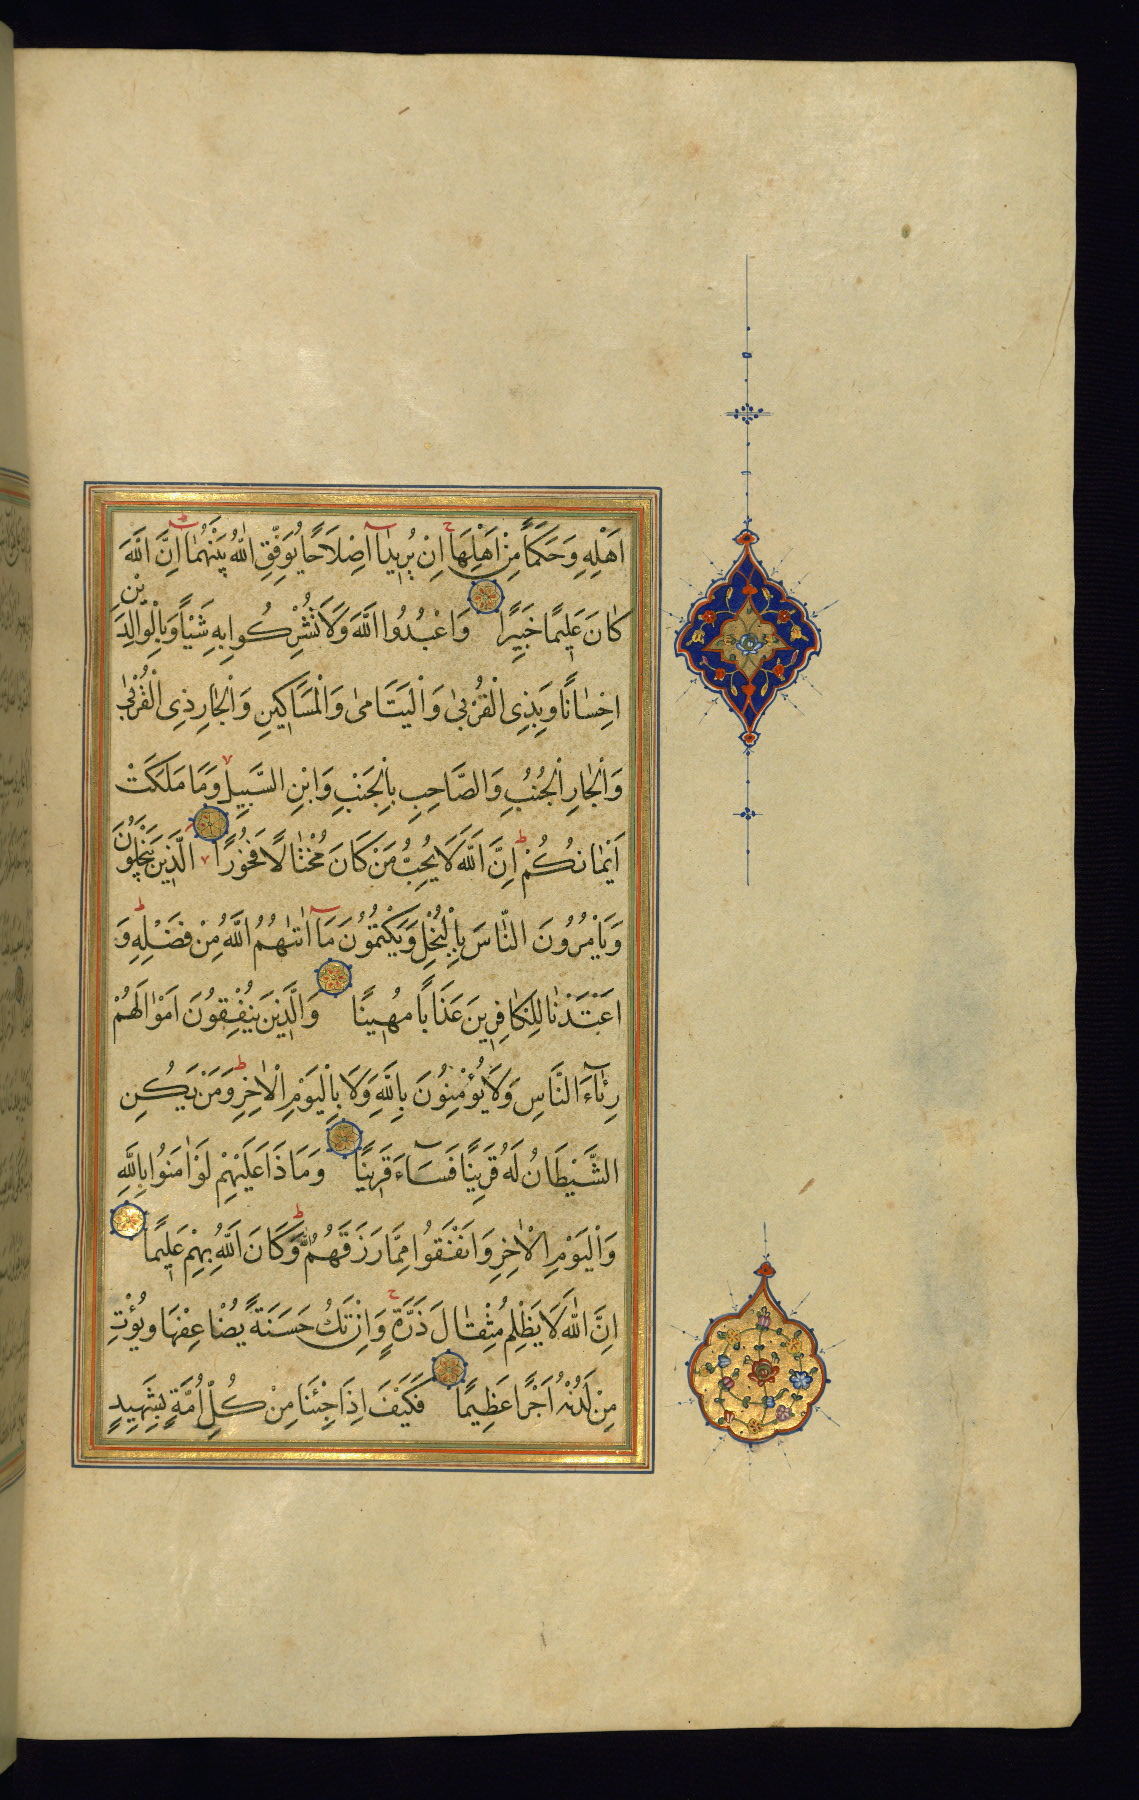 اَهْلِهِ وَحَكَمًا مِنْ اَهْلِهَا اِنْ يُرِيدَا اِصْلَاحًا يُوَفِّقِ اللّٰهُ بَيْنَهُمَا اِنَّ اللّٰهَ
كَانَ عَلِيمًا خَبِيرًا وَاعْبُدُوا اللّٰهَ وَلَا تُشْرِكُوا بِهِ شَيْـًٔا وَبِالْوَالِدَيْنِ
اِحْسَانًا وَبِذِى الْقُرْبٰى وَالْيَتَامٰى وَالْمَسَاكِينِ وَالْجَارِ ذِى الْقُرْبٰى
وَالْجَارِ الْجُنُبِ وَالصَّاحِبِ بِالْجَنْبِ وَابْنِ السَّبِيلِ وَمَا مَلَكَتْ
اَيْمَانُكُمْ اِنَّ اللّٰهَ لَا يُحِبُّ مَنْ كَانَ مُخْتَالًا فَخُورًا الَّذِينَ يَبْخَلُونَ
وَيَاْمُرُونَ النَّاسَ بِالْبُخْلِ وَيَكْتُمُونَ مَا اٰتٰىهُمُ اللّٰهُ مِنْ فَضْلِهِ وَ
اَعْتَدْنَا لِلْكَافِرِينَ عَذَابًا مُهِينًا وَالَّذِينَ يُنْفِقُونَ اَمْوَالَهُمْ
رِئَاءَ النَّاسِ وَلَا يُؤْمِنُونَ بِاللّٰهِ وَلَا بِالْيَوْمِ الْاٰخِرِ وَمَنْ يَكُنِ
الشَّيْطَانُ لَهُ قَرِينًا فَسَاءَ قَرِينًا وَمَاذَا عَلَيْهِمْ لَوْ اٰمَنُوا بِاللّٰهِ
وَالْيَوْمِ الْاٰخِرِ وَاَنْفَقُوا مِمَّا رَزَقَهُمُ اللّٰهُ وَكَانَ اللّٰهُ بِهِمْ عَلِيمًا
اِنَّ اللّٰهَ لَا يَظْلِمُ مِثْقَالَ ذَرَّةٍ وَاِنْ تَكُ حَسَنَةً يُضَاعِفْهَا وَيُؤْتِ
مِنْ لَدُنْهُ اَجْرًا عَظِيمًا فَكَيْفَ اِذَا جِئْنَا مِنْ كُلِّ اُمَّةٍ بِشَهِيدٍ